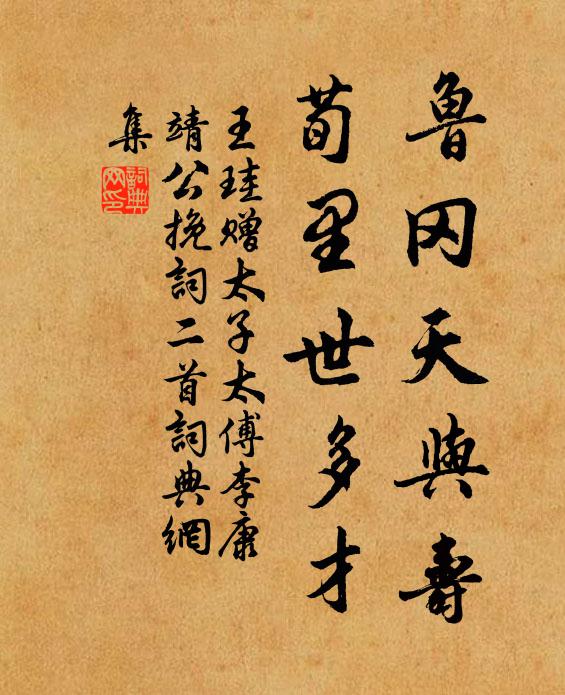 魯冈天與壽
荀里世多才
王珪赠太子太傅李康
靖公挽詞二首詞典網
集
詞典网印